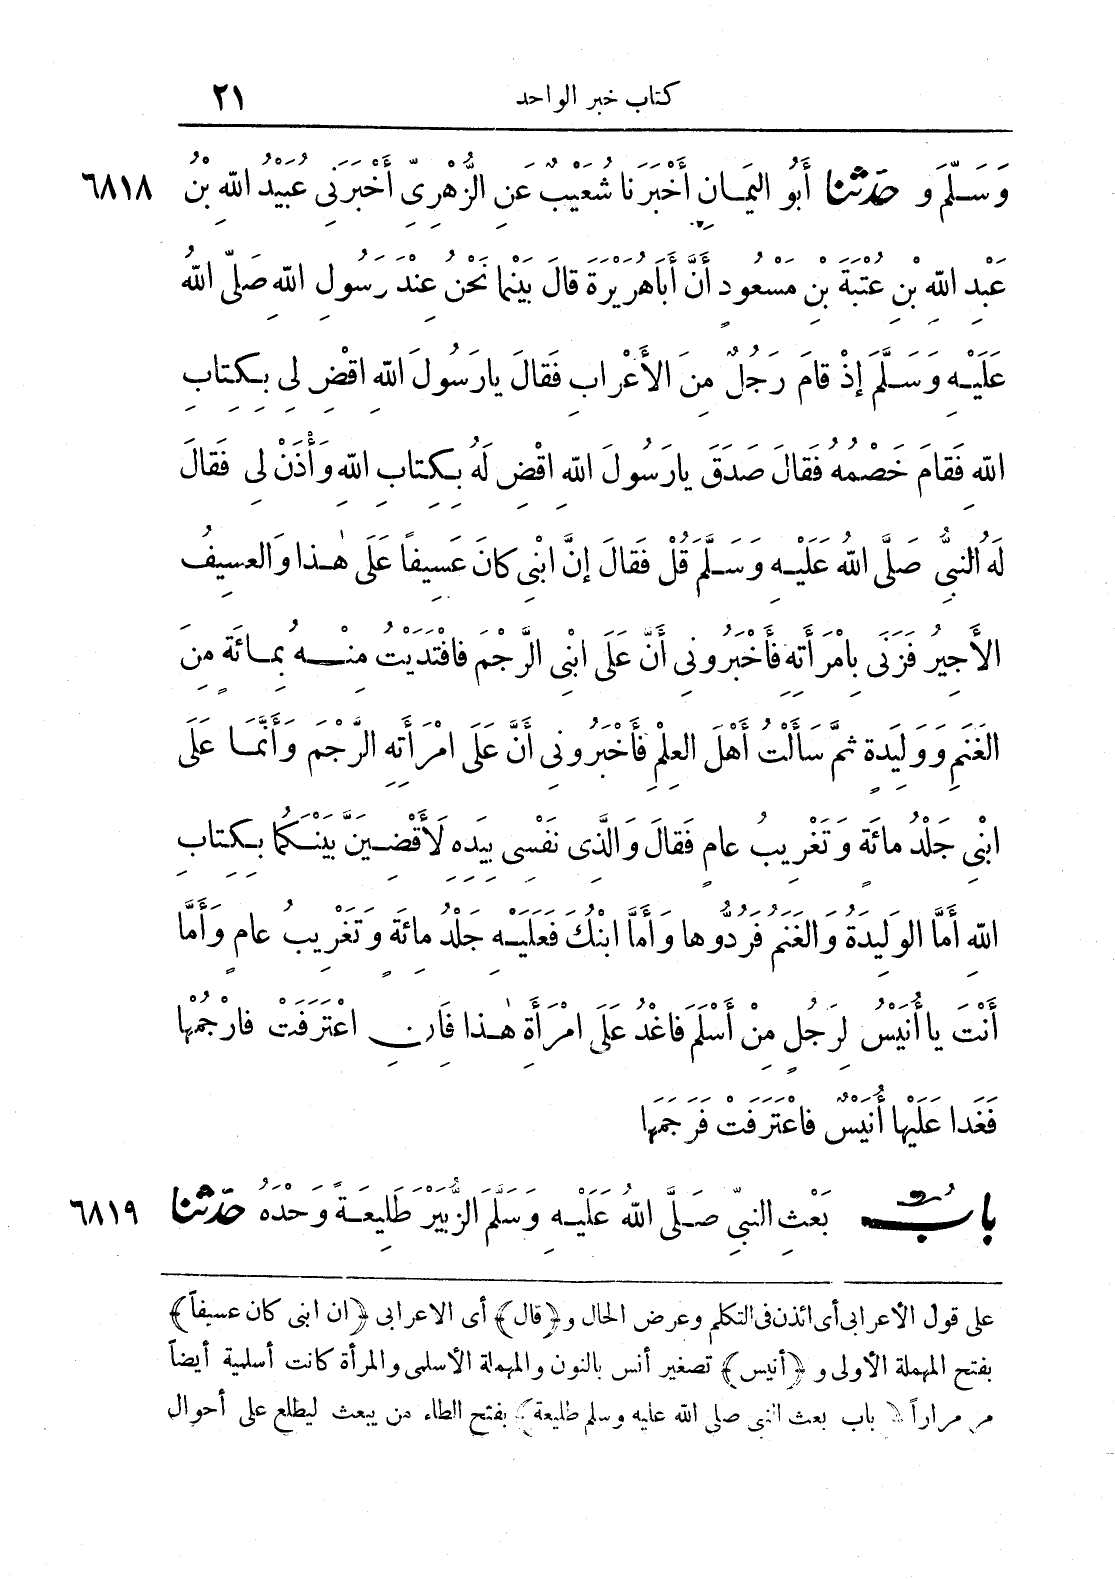 كتاب خبر الواحد ٢١
وَسَلَّمَ و حَدَّثَنَا أَبُو اليَمَانِ أَخْبَرَنَا شُعَيْبٌ عَنِ الزُّهْرِيِّ أَخْبَرَنِى عُبَيْدُ اللهِ بْنُ ٦٨١٨
عَبْدِ اللهِ بْنِ عُتْبَةَ بْنِ مَسْعُودٍ أَنَّ أَبَاهُرَيْرَةَ قَالَ بَيْنَمَا نَحْنُ عِنْدَ رَسُولِ اللهِ صَلَّى اللهُ
عَلَيْهِ وَسَلَّمَ إِذْ قَامَ رَجُلٌ مِنَ الأَعْرَابِ فَقَالَ يارَسُولَ اللهِ اقْضِ لِى بِكِتَابِ
اللهِ فَقَامَ خَصْمُهُ فَقَالَ صَدَقَ يارَسُولَ اللهِ اقْضِ لَهُ بِكِتَابِ اللهِ وَأْذَنْ لِى فَقَالَ
لَهُ النَّبِىُّ صَلَّى اللهُ عَلَيْهِ وَسَلَّمَ قُلْ فَقَالَ إِنَّ ابْنِى كَانَ عَسِيفًا عَلَى هٰذَا وَالعَسِيفُ
الأَجِيرُ فَزَنَى بِامْرَأَتِهِ فَأَخْبَرُونِى أَنَّ عَلَى ابْنِى الرَّجْمَ فَافْتَدَيْتُ مِنْهُ بِمِائَةٍ مِنَ
الغَنَمِ وَوَلِيدَةٍ ثُمَّ سَأَلْتُ أَهْلَ العِلْمِ فَأَخْبَرُونِى أَنَّ عَلَى امْرَأَتِهِ الرَّجْمَ وَأَنَّمَا عَلَى
ابْنِى جَلْدُ مِائَةٍ وَتَغْرِيبُ عَامٍ فَقَالَ وَالَّذِى نَفْسِى بِيَدِهِ لَأَقْضِيَنَّ بَيْنَكُمَا بِكِتَابِ
اللهِ أَمَّا الوَلِيدَةُ وَالغَنَمُ فَرُدُّوهَا وَأَمَّا ابْنُكَ فَعَلَيْهِ جَلْدُ مِائَةٍ وَتَغْرِيبُ عَامٍ وَأَمَّا
أَنْتَ يا أُنَيْسُ لِرَجُلٍ مِنْ أَسْلَمَ فَاغْدُ عَلَى امْرَأَةِ هٰذَا فَإِنِ اعْتَرَفَتْ فَارْجُمْهَا
فَغَدَا عَلَيْهَا أُنَيْسٌ فَاعْتَرَفَتْ فَرَجَمَهَا
بَابُ بَعْثِ النَّبِىِّ صَلَّى اللهُ عَلَيْهِ وَسَلَّمَ الزُّبَيْرَ طَلِيعَةً وَحْدَهُ حَدَّثَنَا ٦٨١٩
على قول الأعرابى أى ائذن فى التكلم وعرض الحال و﴿قال﴾ أى الاعرابى ﴿ان ابنى كان عسيفاً﴾
بفتح المهملة الأولى و﴿أنيس﴾ تصغير أنس بالنون والمهملة الأسلمى والمرأة كانت أسلمية أيضاً
مر مراراً ﴿باب بعث النبى صلى الله عليه وسلم طليعة﴾ بفتح الطاء من يبعث ليطلع على أحوال